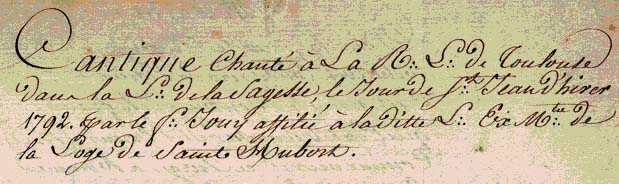 Cantique Chanté à La R∴ L∴ de Toulouse
dans la L∴ de la Sagesse, le Jour de St. Jean d'hiver
1792. par le f∴ Jouy affilié à la ditte L∴ Ex Mtre de
la Loge de Sainte Hubert.